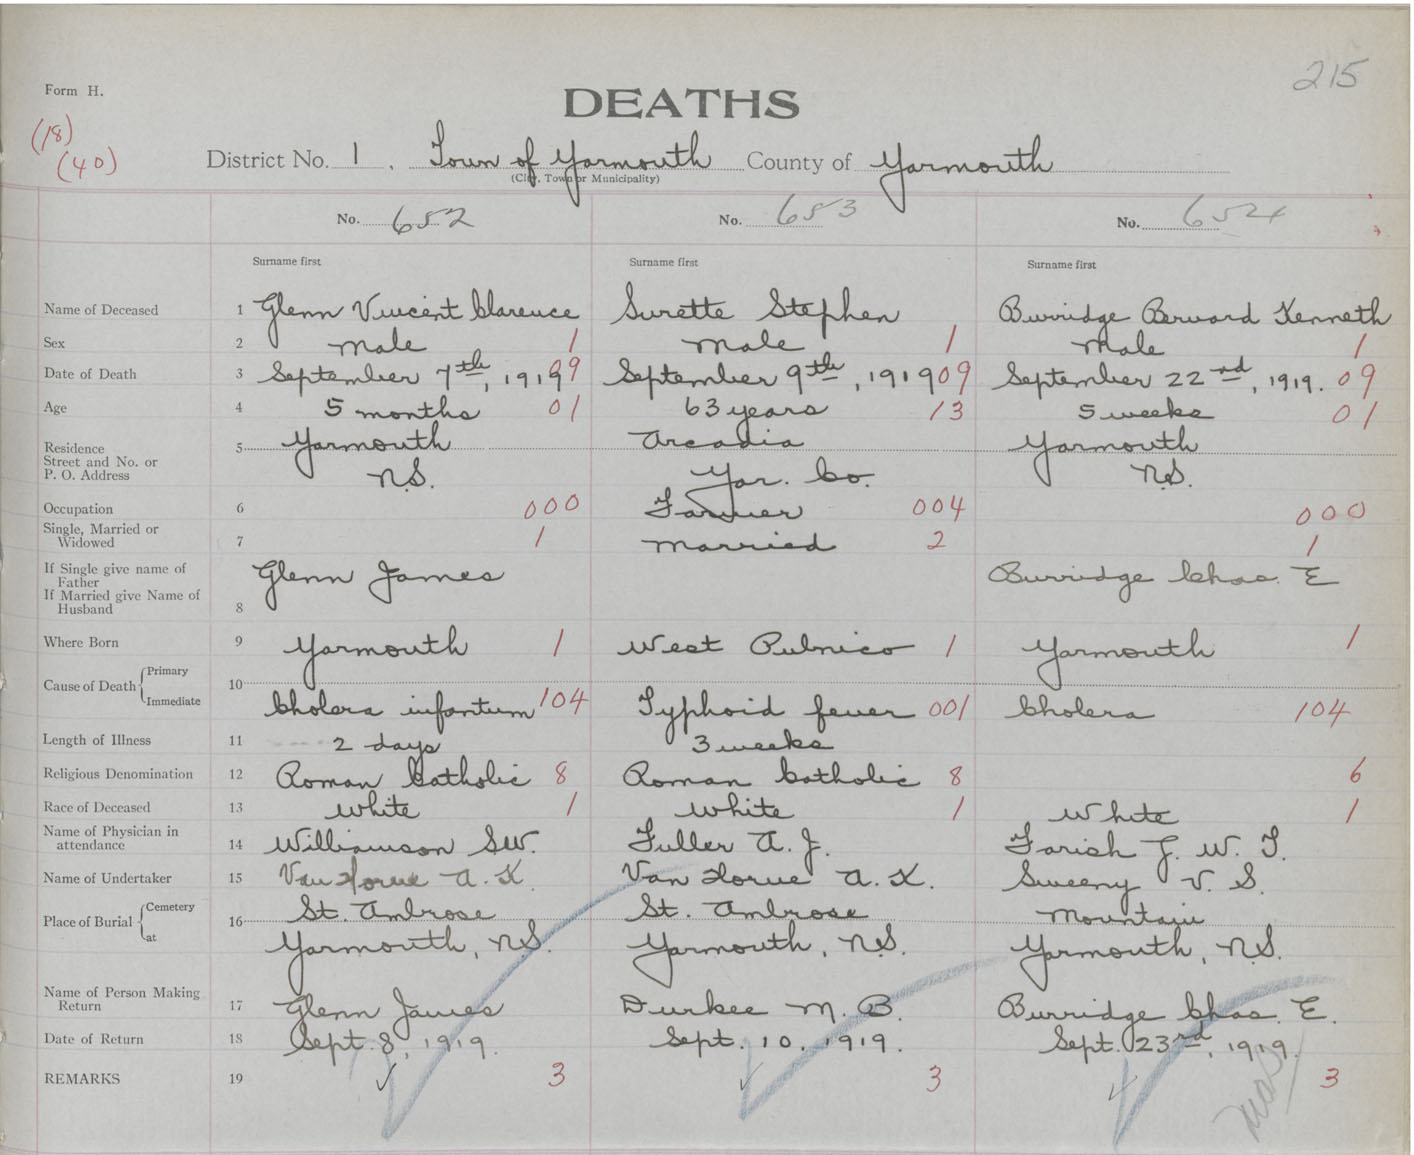 215
Form H.
DEATHS
(18)
(40)
District No. 1. Town of Yarmouth County of Yarmouth
(City, Town or Municipality)
No. 652 No. 653 No. 654
Surname first Surname first Surname first
Name of Deceased 1 Glenn Vincent Clarence Surette Stephen Burridge Bernard Kenneth
Sex 2 Male 1 Male 1 Male 1
Date of Death 3 September 7th, 1919 09 September 9th, 1919 09 September 22nd, 1919. 09
Age 4 5 months 01 63 years 13 5 weeks 01
Residence 5 Yarmouth Arcadia Yarmouth
Street and No. or
P. O. Address N.S. Yar. Co. N.S.
Occupation 6 000 Farmer 004 000
Single, Married or
Widowed 7 1 Married 2 1
If Single give name of
Father Glenn James Burridge Chas. E
If Married give Name of
Husband 8
Where Born 9 Yarmouth 1 West Pubnico 1 Yarmouth 1
Cause of Death Primary 10
Immediate Cholera infantum 104 Typhoid fever 001 Cholera 104
Length of Illness 11 2 days 3 weeks
Religious Denomination 12 Roman Catholic 8 Roman Catholic 8 6
Race of Deceased 13 White 1 White 1 White 1
Name of Physician in
attendance 14 Williamson S.W. Fuller A. J. Farish J. W. T.
Name of Undertaker 15 Van Horne A. K. Van Horne A. K. Sweeny V. S.
Place of Burial Cemetery 16 St. Ambrose St. Ambrose Mountain
at Yarmouth, N.S. Yarmouth, N.S. Yarmouth, N.S.
Name of Person Making
Return 17 Glenn James Durkee M. B. Burridge Chas. E.
Date of Return 18 Sept. 8, 1919. Sept. 10, 1919. Sept. 23rd, 1919.
REMARKS 19 3 3 3